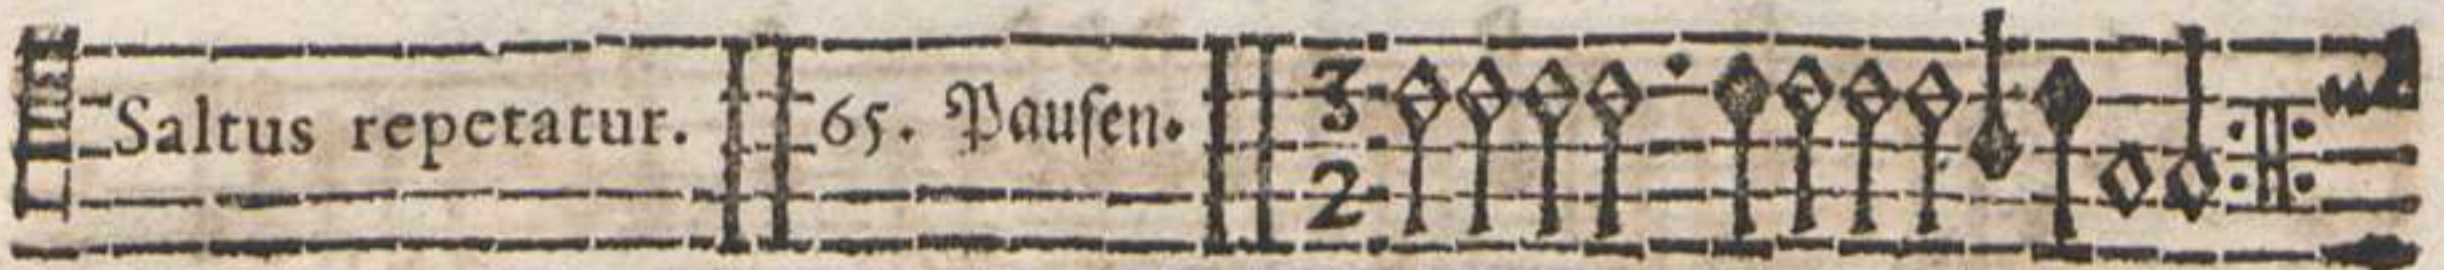 Saltus repetatur. 65. Pausen. 3
2